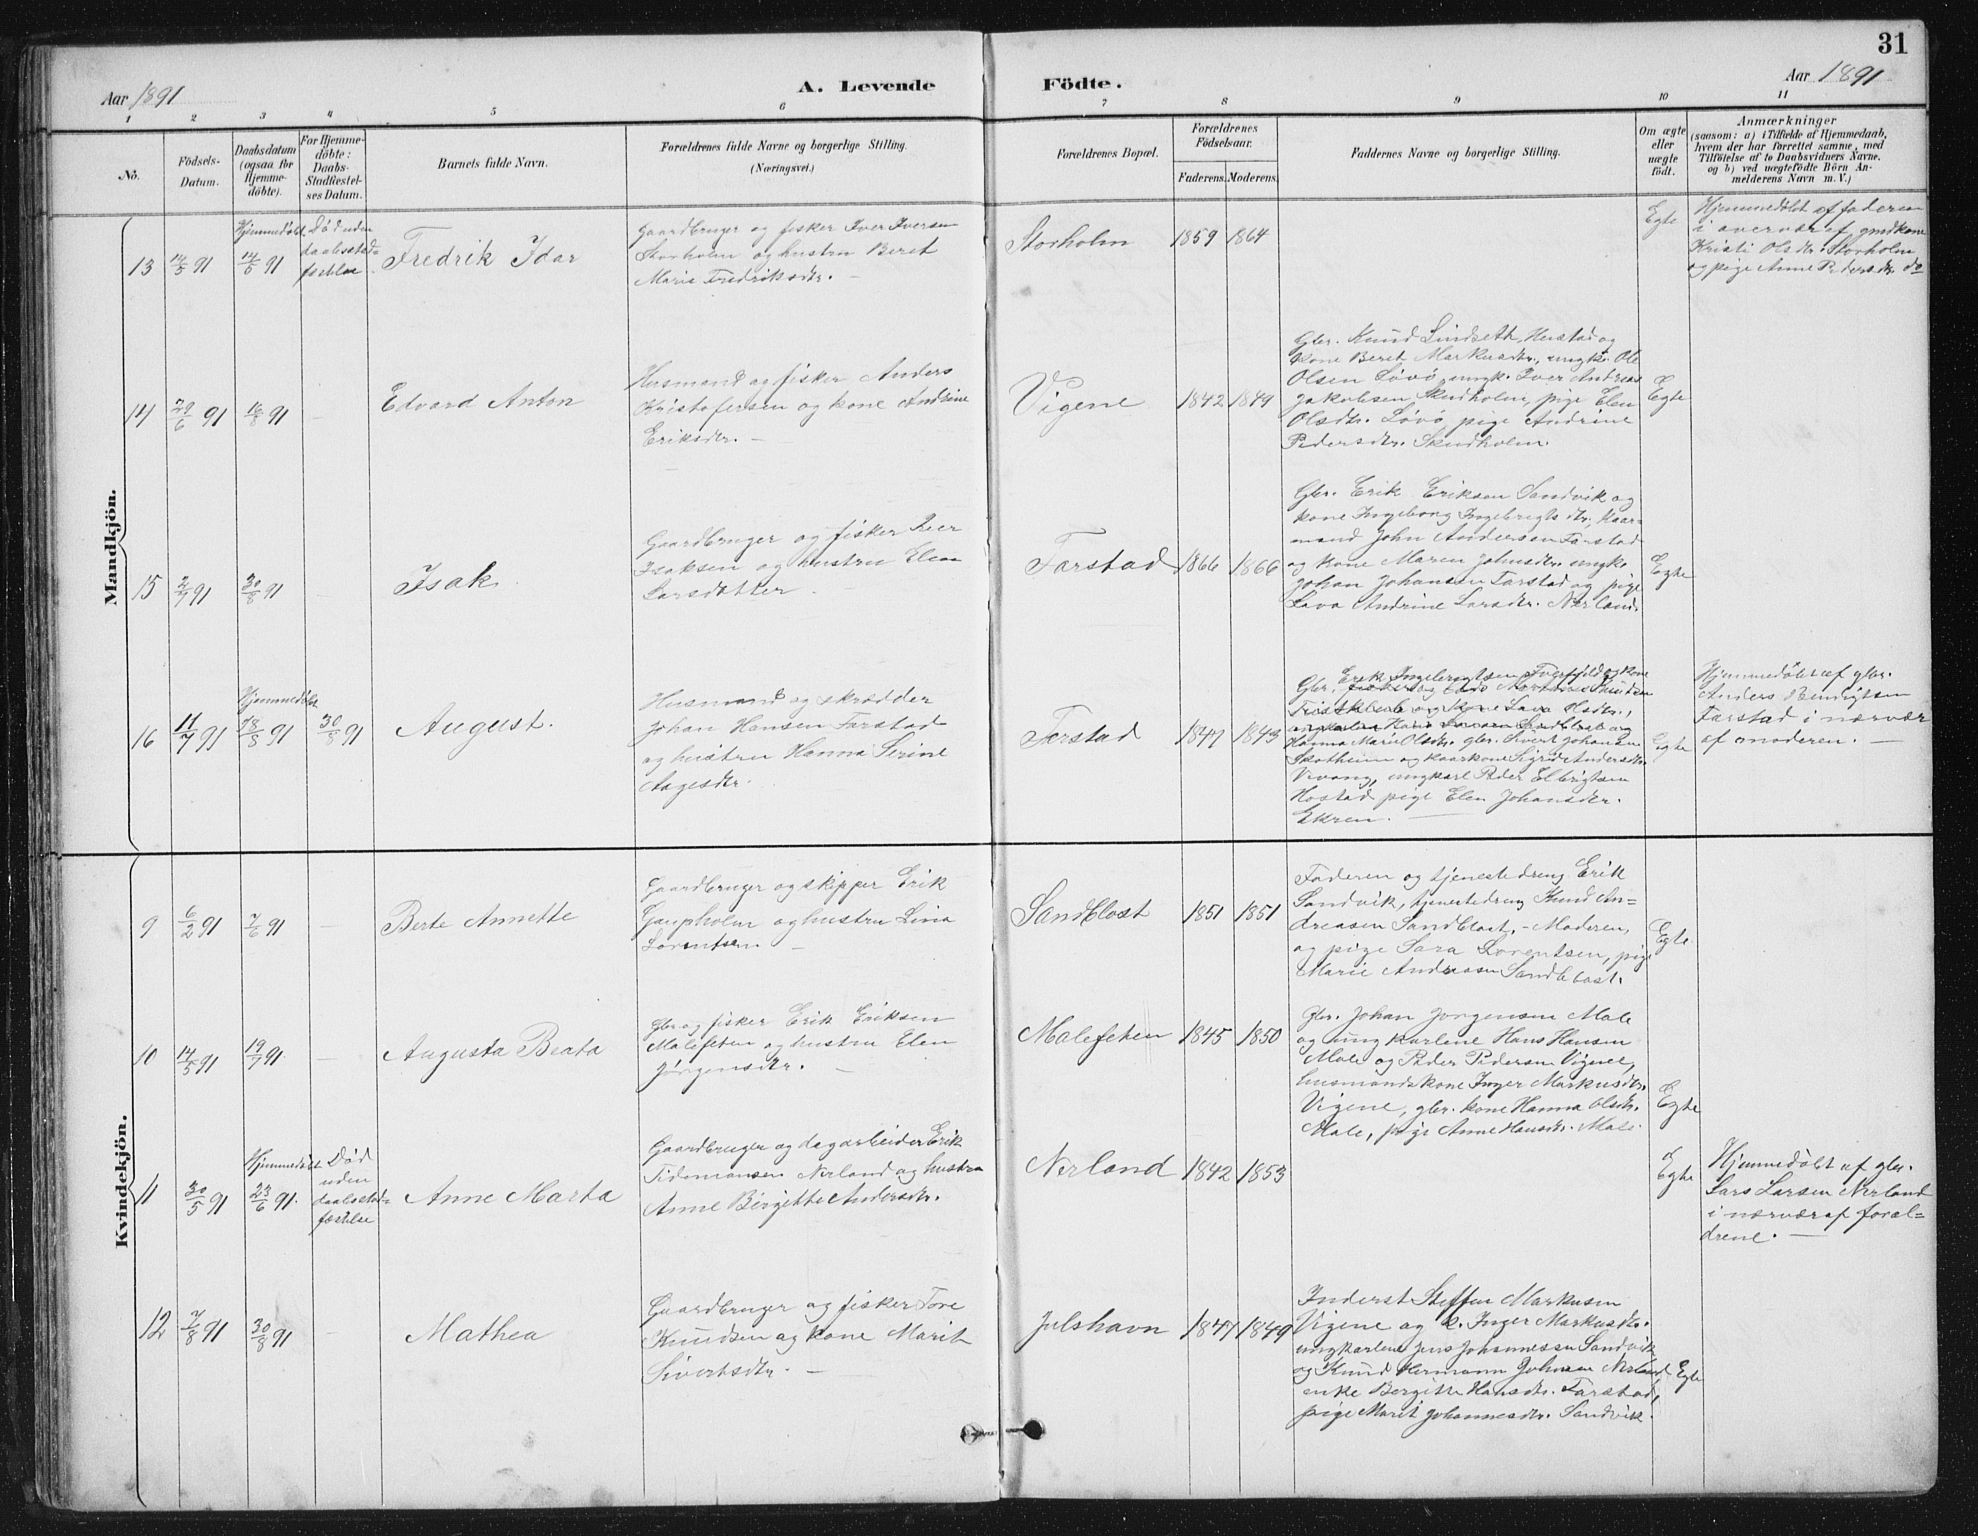 31
Aar 1891
A. Levende
Födte.
Aar 1891
1 2 3 4 5 6 7 8 9 10 11
No.
Födsels-Datum.
Daabsdatum (ogsaa for Hjemme-döbte).
For Hjemme-döbte: Daabs-Stadfæstel-ses Datum.
Barnets fulde Navn.
Forældrenes fulde Navne og borgerlige Stilling.
(Næringsvei.)
Forældrenes Bopæl.
Forældrenes Födselsaar.
Faderens. Moderens.
Faddernes Navne og borgerlige Stilling.
Om ægte eller uægte födt.
Anmærkninger
(saasom: a) i Tilfælde af Hjemmedaab,
hvem der har forrettet samme, med
Tilföielse af to Daabsvidners Navne,
og b) ved uægtefödte Börn An-
melderens Navn m. V.)
Mandkjön.
13
14/5 91
Hjemmedøbt
14/5 91
Død uden
daabsstad-
fæstelse
Fredrik Idar
Gaardbruger og fisker Iver Iversen
Storholm og hustru Beret
Marie Fredriksdtr. —
Storholm
1859 1864
Egte
Hjemmedøbt af faderen
i overvær af gmdkone
Kristi Olsdtr. Storholm
og pige Anne Pedersdtr. do
14
29/6 91
16/8 91
Edvard Anton
Husmand og fisker Anders
Kristofersen og kone Andrine
Eriksdtr. —
Vigene
1842 1849
Gbr. Knud Lindseth, Hustad og
kone Beret Markusdtr., ungk. Ole
Olsen Løvø, ungk. Iver Andreas
Jakobsen Skudholm, pige Elen
Olsdtr. Løvø, pige Andrine
Pedersdtr. Skudholm.
Egte
15
2/7 91
30/8 91
Isak
Gaardbruger og fisker Peer
Isaksen og hustru Elen
Larsdatter —
Farstad
1866 1866
Gbr. Erik Eriksen Sandvik og
kone Ingeborg Ingebrigtsdtr., kaar-
mand John Andersen Farstad
og kone Maren Johnsdtr. ungk.
Johan Johansen Farstad og pige
Lava Andrine Larsdtr. Nerland.
Egte
16
11/7 91
Hjemmedøbt
18/8 91
30/8 91
August.
Husmand og skrædder
Johan Hansen Farstad
og hustru Hanna Serine
Aagesdtr.
Farstad
1847 1843
Erik Ingebrigtsen
Gbr.
Hanna Marie Olsdtr. gbr. Sivert Johansen
Skotheim og kaarkone Sigrid Andersdtr.
Vevang, ungkarl Peder Elbrigtsen
Hostad pige Elen Johansdtr.
Ekren. —
Egte
Hjemmedøbt af gbr.
Anders Benrigtsen
Farstad i nærvær
af moderen. —
Kvindekjön.
9
6/2 91
7/6 91
Berte Annette
Gaardbruger og skipper Erik
Gaupholm og hustru Lina
Lorentsen —
Sandblost
1851 1851
Faderen og tjenestedreng Erik
Sandvik, tjenestedreng Knud An-
dreasen Sandblost, - Moderen,
og pige Sara Lorentsen, pige
Marie Andreasen Sandblost.
Egte
10
14/5 91
19/7 91
Augusta Beata
Gbr og fisker Erik Eriksen
Malefeten og hustru Elen
Jørgensdtr. —
Malefeten
1845 1850
Gbr. Johan Jørgensen Male
og ungkarlene Hans Hansen
Male og Peder Pedersen Vigene,
husmandskone Inger Markusdtr.
Vigene, gbr. kone Hanna Olsdtr.
Male, pige Anne Hansdtr. Male.
Egte
11
30/5 91
Hjemmedøbt
23/6 91.
Død
uden
daabsstad-
fæstelse
Anne Marta
Gaardbruger og dagarbeider Erik
Tidemansen Nerland og hustru
Anne Birgitte Andersdtr.
Nerland
1842 1853
Egte
Hjemmedøbt af gbr.
Lars Larsen Nerland
i nærvær af foræl-
drene. —
12
7/8 91
30/8 91
Mathea
Gaardbruger og fisker Tore
Knudsen og kone Marit
Sivertsdtr. —
Julshavn
1847 1849
Inderst Steffen Markusen
Vigene og k. Inger Markusdtr.
ungkarlene Jens Johannessen Sandvik
og Knud Hermann Johnsen Nerland
enke Bergitte Hansdtr. Farstad,
pige Marit Johannesdtr. Sandvik.
Egte